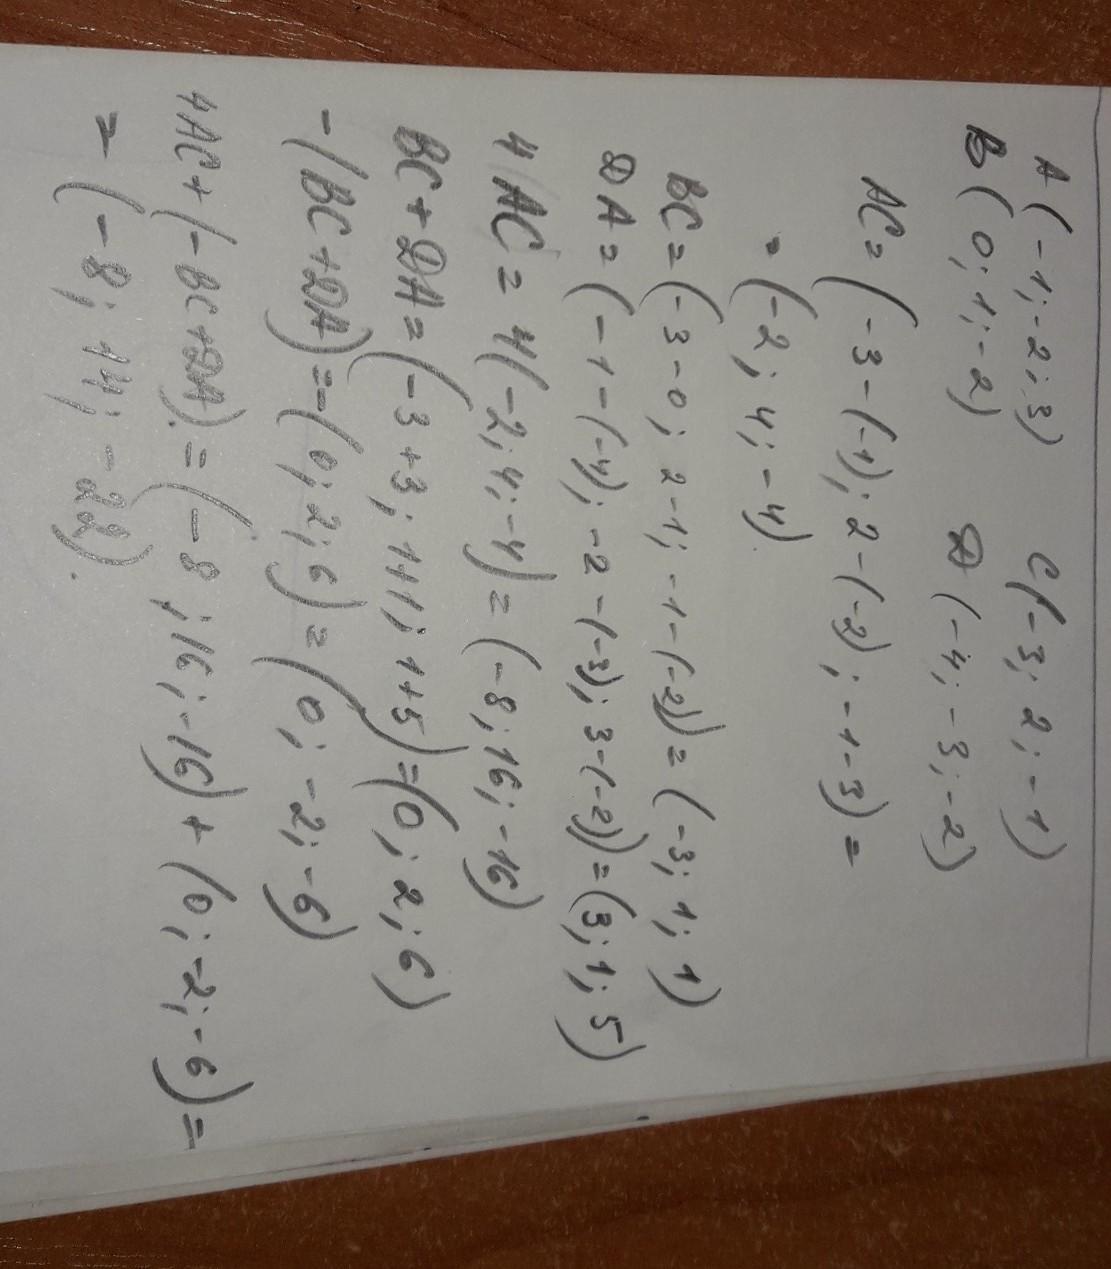 A(-1;-2;3) C(-3; 2; -1)
B(0;1;-2) D(-4;-3;-2)
AC=(-3-(-1); 2-(-2); -1-3)=
=(-2; 4; -4).
BC=(-3-0; 2-1; -1-(-2))=(-3; 1; 1)
DA=(-1-(-4); -2-(-3); 3-(-2))=(3; 1; 5)
4AC=4(-2;4;-4)=(-8;16;-16)
BC+DA=(-3+3; 1+1; 1+5)=(0; 2; 6)
-(BC+DA)=-(0;2;6)=(0; -2; -6)
4AC+(-BC+DA)=(-8;16;-16)+(0;-2;-6)=
=(-8; 14; -22).